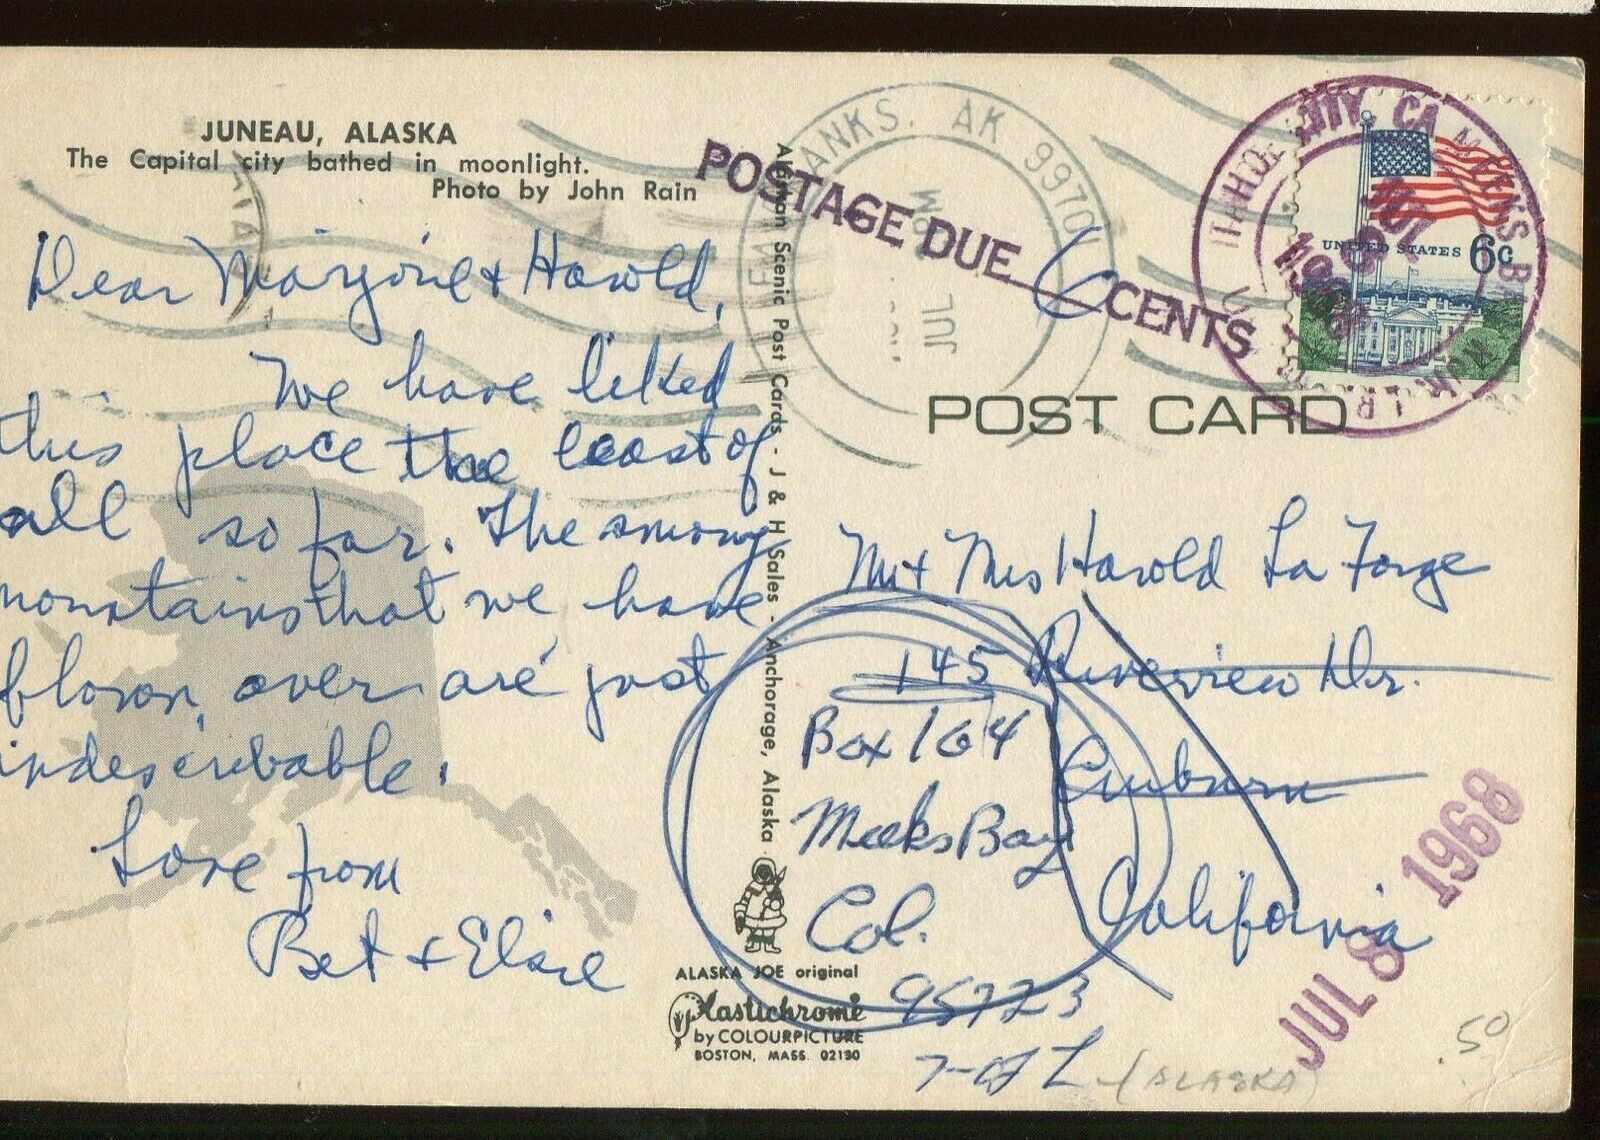 JUNEAU, ALASKA
The Capital city bathed in moonlight.
Photo by John Rain
Dear Marjorie & Harold,
We have liked
this place the least of
all so far. The snowy
mountains that we have
flown over are just
indescribable.
Love from
Bet & Elsie
Scenic Post Cards - J & H Sales - Anchorage, Alaska
ALASKA JOE original
Plastichrome
by COLOURPICTURE
BOSTON, MASS. 02130
ANKS. AK 99701
PM
JUL
POSTAGE DUE 6 CENTS
CITY, CA
MEEKS BAY
JUL
8
1968
UNITED STATES 6c
POST CARD
Mr + Mrs Harold La Forge
145 Riverview Dr.
Auburn
California
Box 164
Meeks Bay
Cal.
95723
JUL 8 1968
(ALASKA)
.50